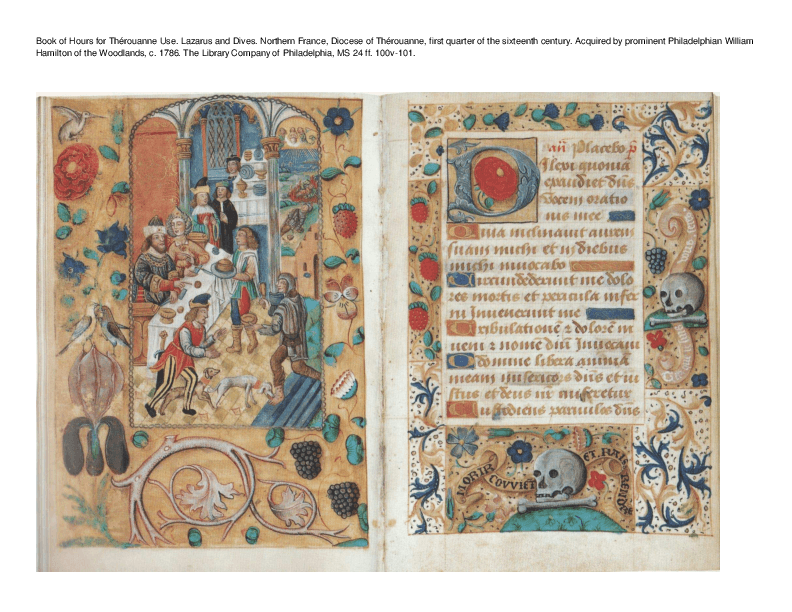 Book of Hours for Thérouanne Use. Lazarus and Dives. Northern France, Diocese of Thérouanne, first quarter of the sixteenth century. Acquired by prominent Philadelphian William
Hamilton of the Woodlands, c. 1786. The Library Company of Philadelphia, MS 24 ff. 100v-101.
añ Placebo p
Dilexi quonia
exaudiet dñs
vocem oratio
nis mee
Quia inclinauit aurem
suam michi et in diebus
michi inuocabo
Circundederunt me dolo
res mortis et pericula infer
ni inuenerunt me
Tribulatione z dolore in
ueni z nome dñi inuocaui
O domine libera animā
meam misericors dñs et iu
stus et deus nr miseretur
Custodiens paruulos dñs
MORIR
COVVIET
ET